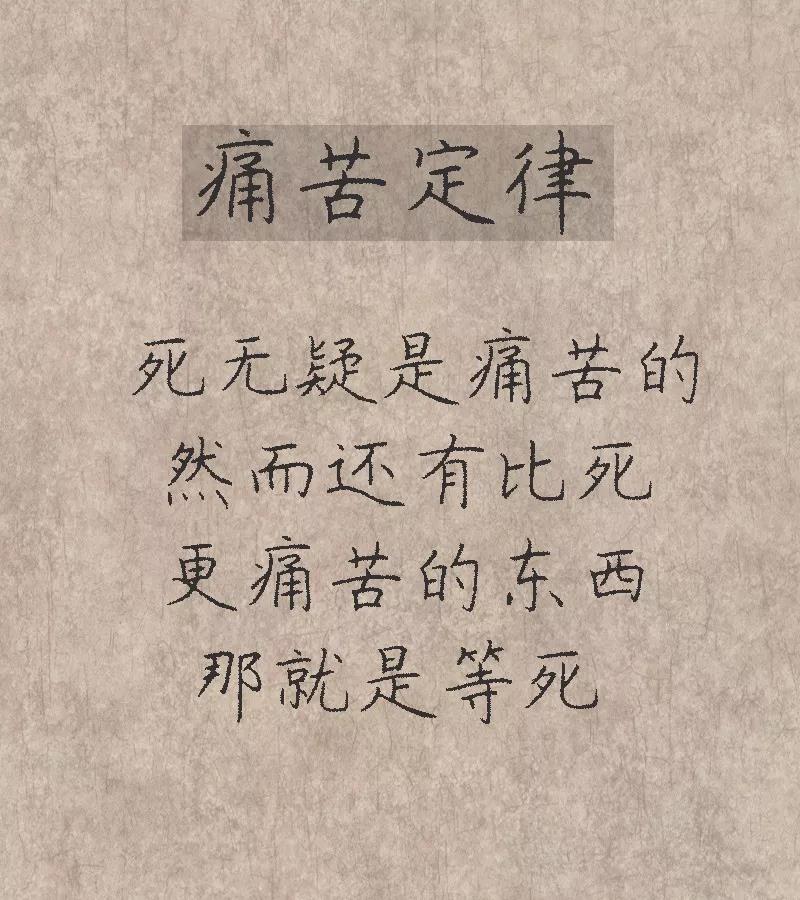 痛苦定律
死无疑是痛苦的
然而还有比死
更痛苦的东西
那就是等死